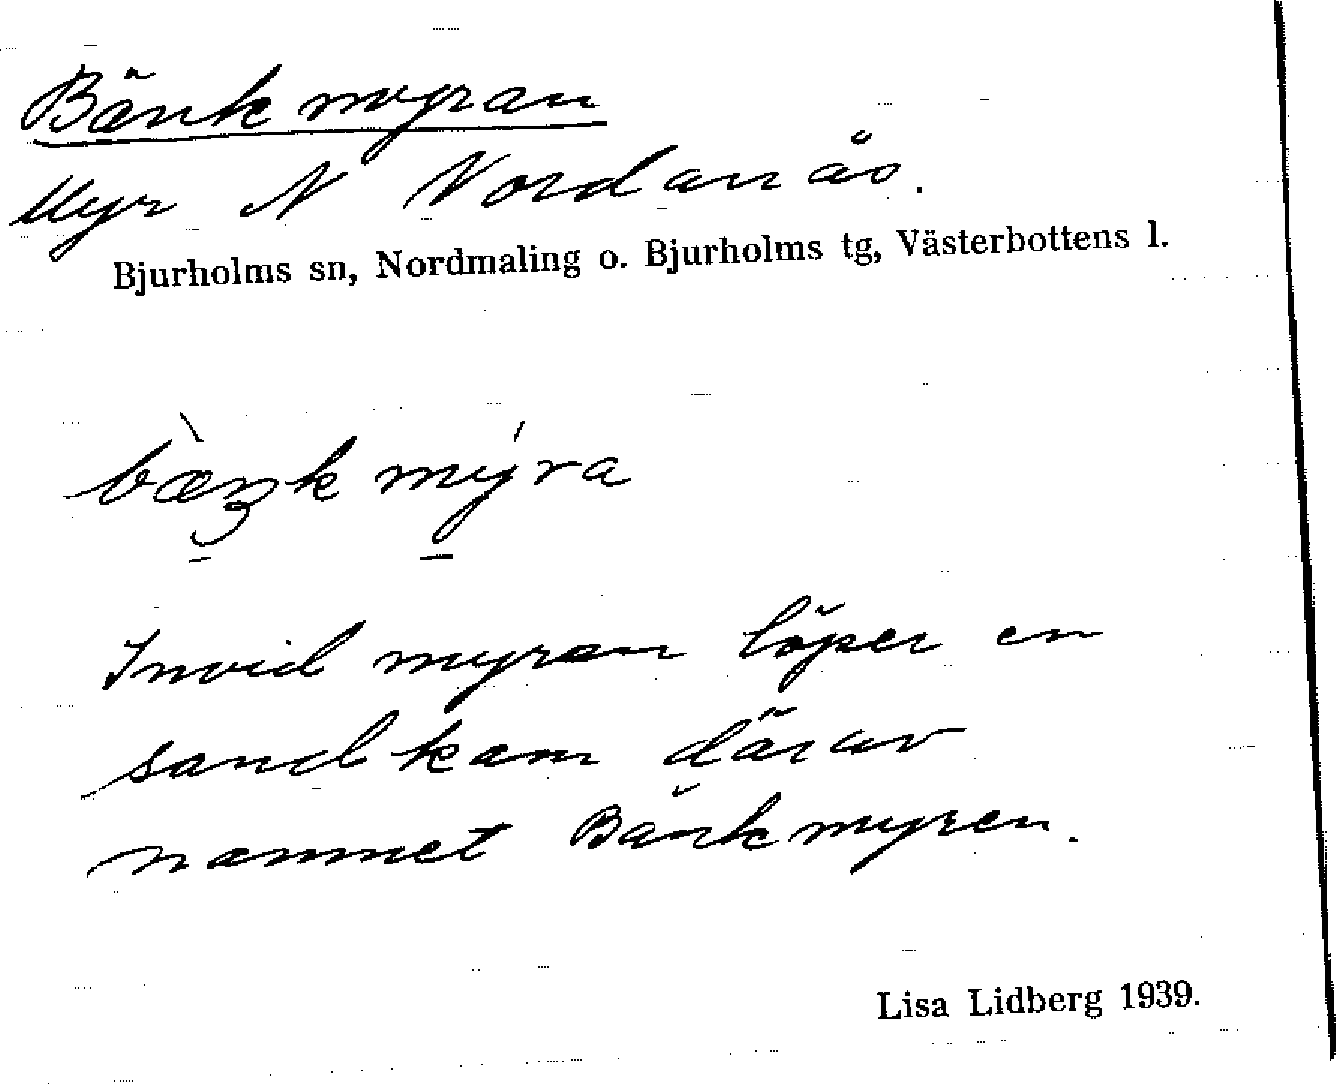 Bänkmyran
Myr N Nordanås.
Bjurholms sn, Nordmaling o. Bjurholms tg, Västerbottens l.
bæŋk mýra
Invid myran löper en
sandkam därav
namnet Bänkmyren.
Lisa Lidberg 1939.